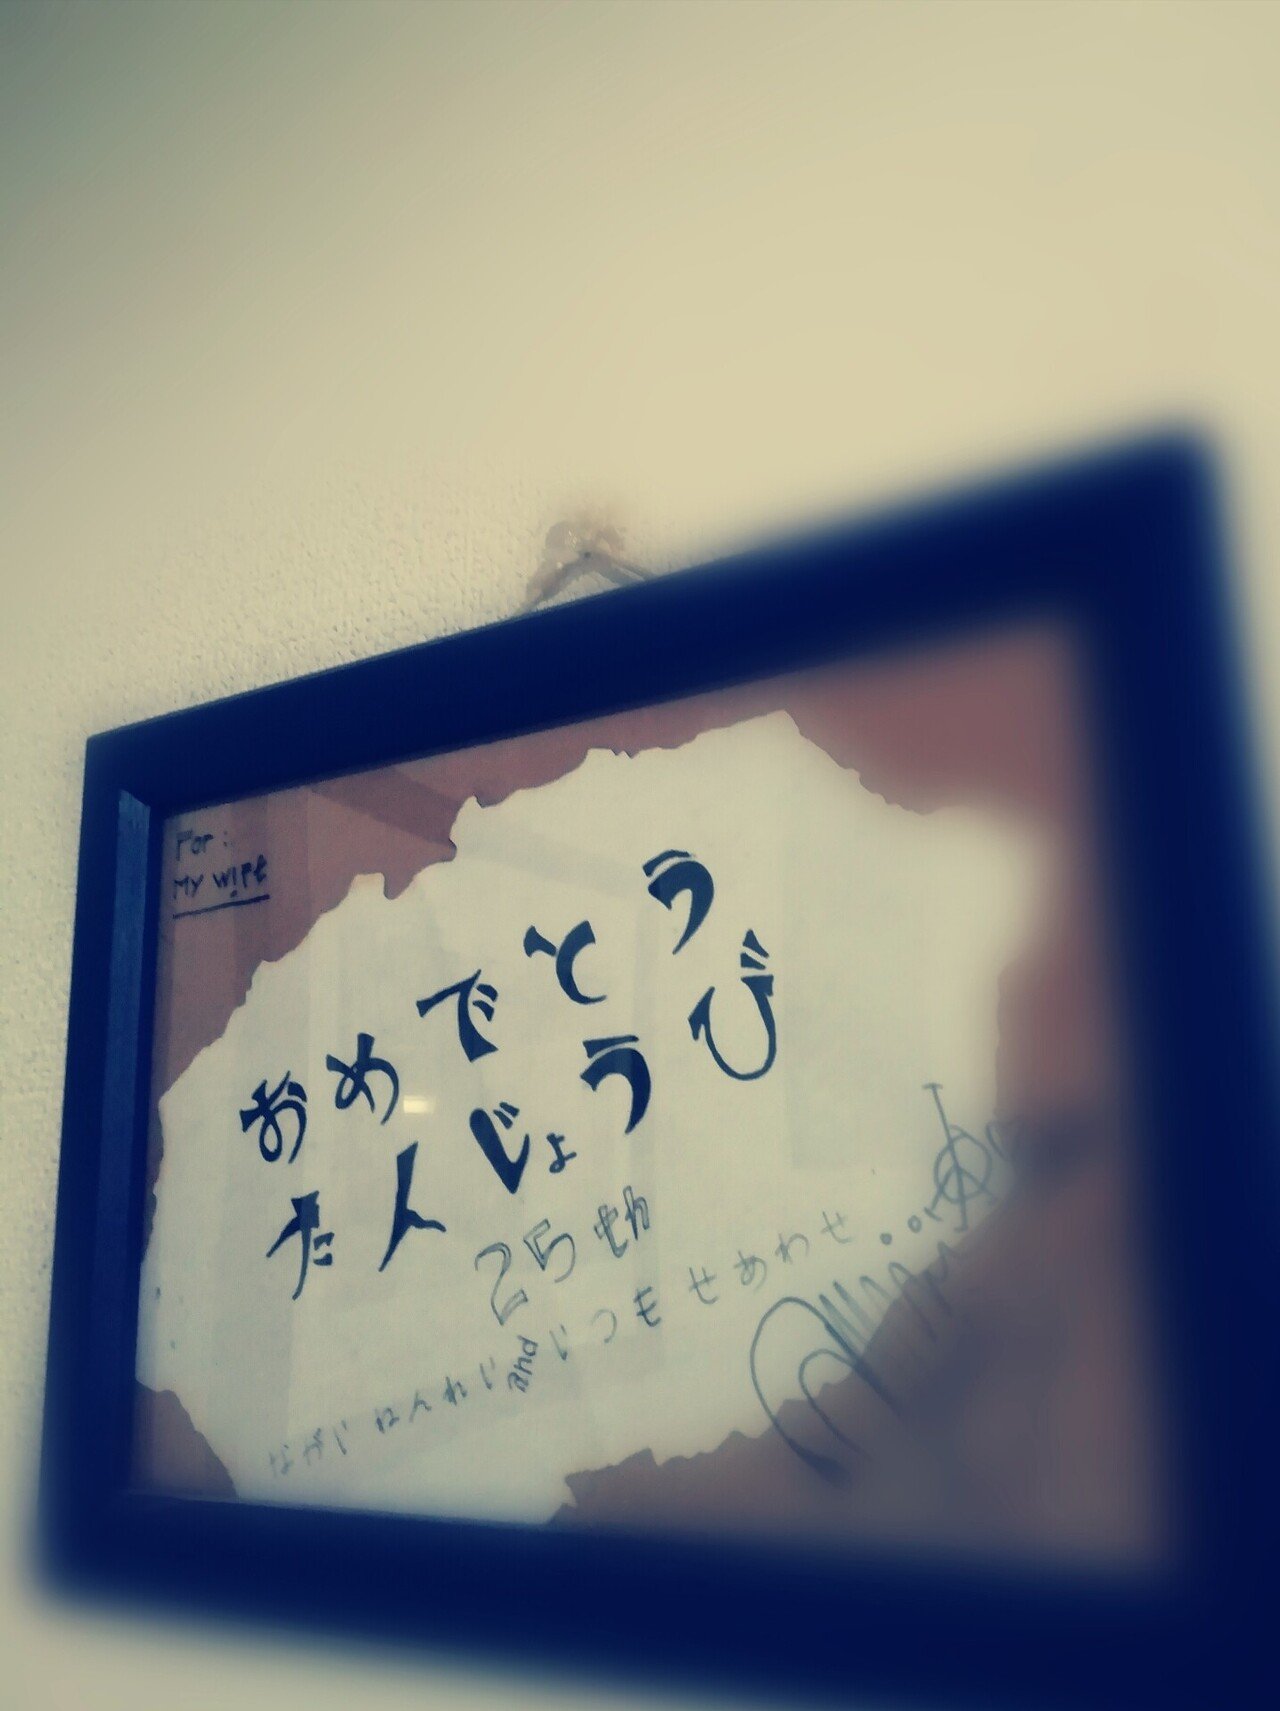 For:
My wife
おめでとう
たんじょうび
25
ながいねんれい and いつもせあわせ...